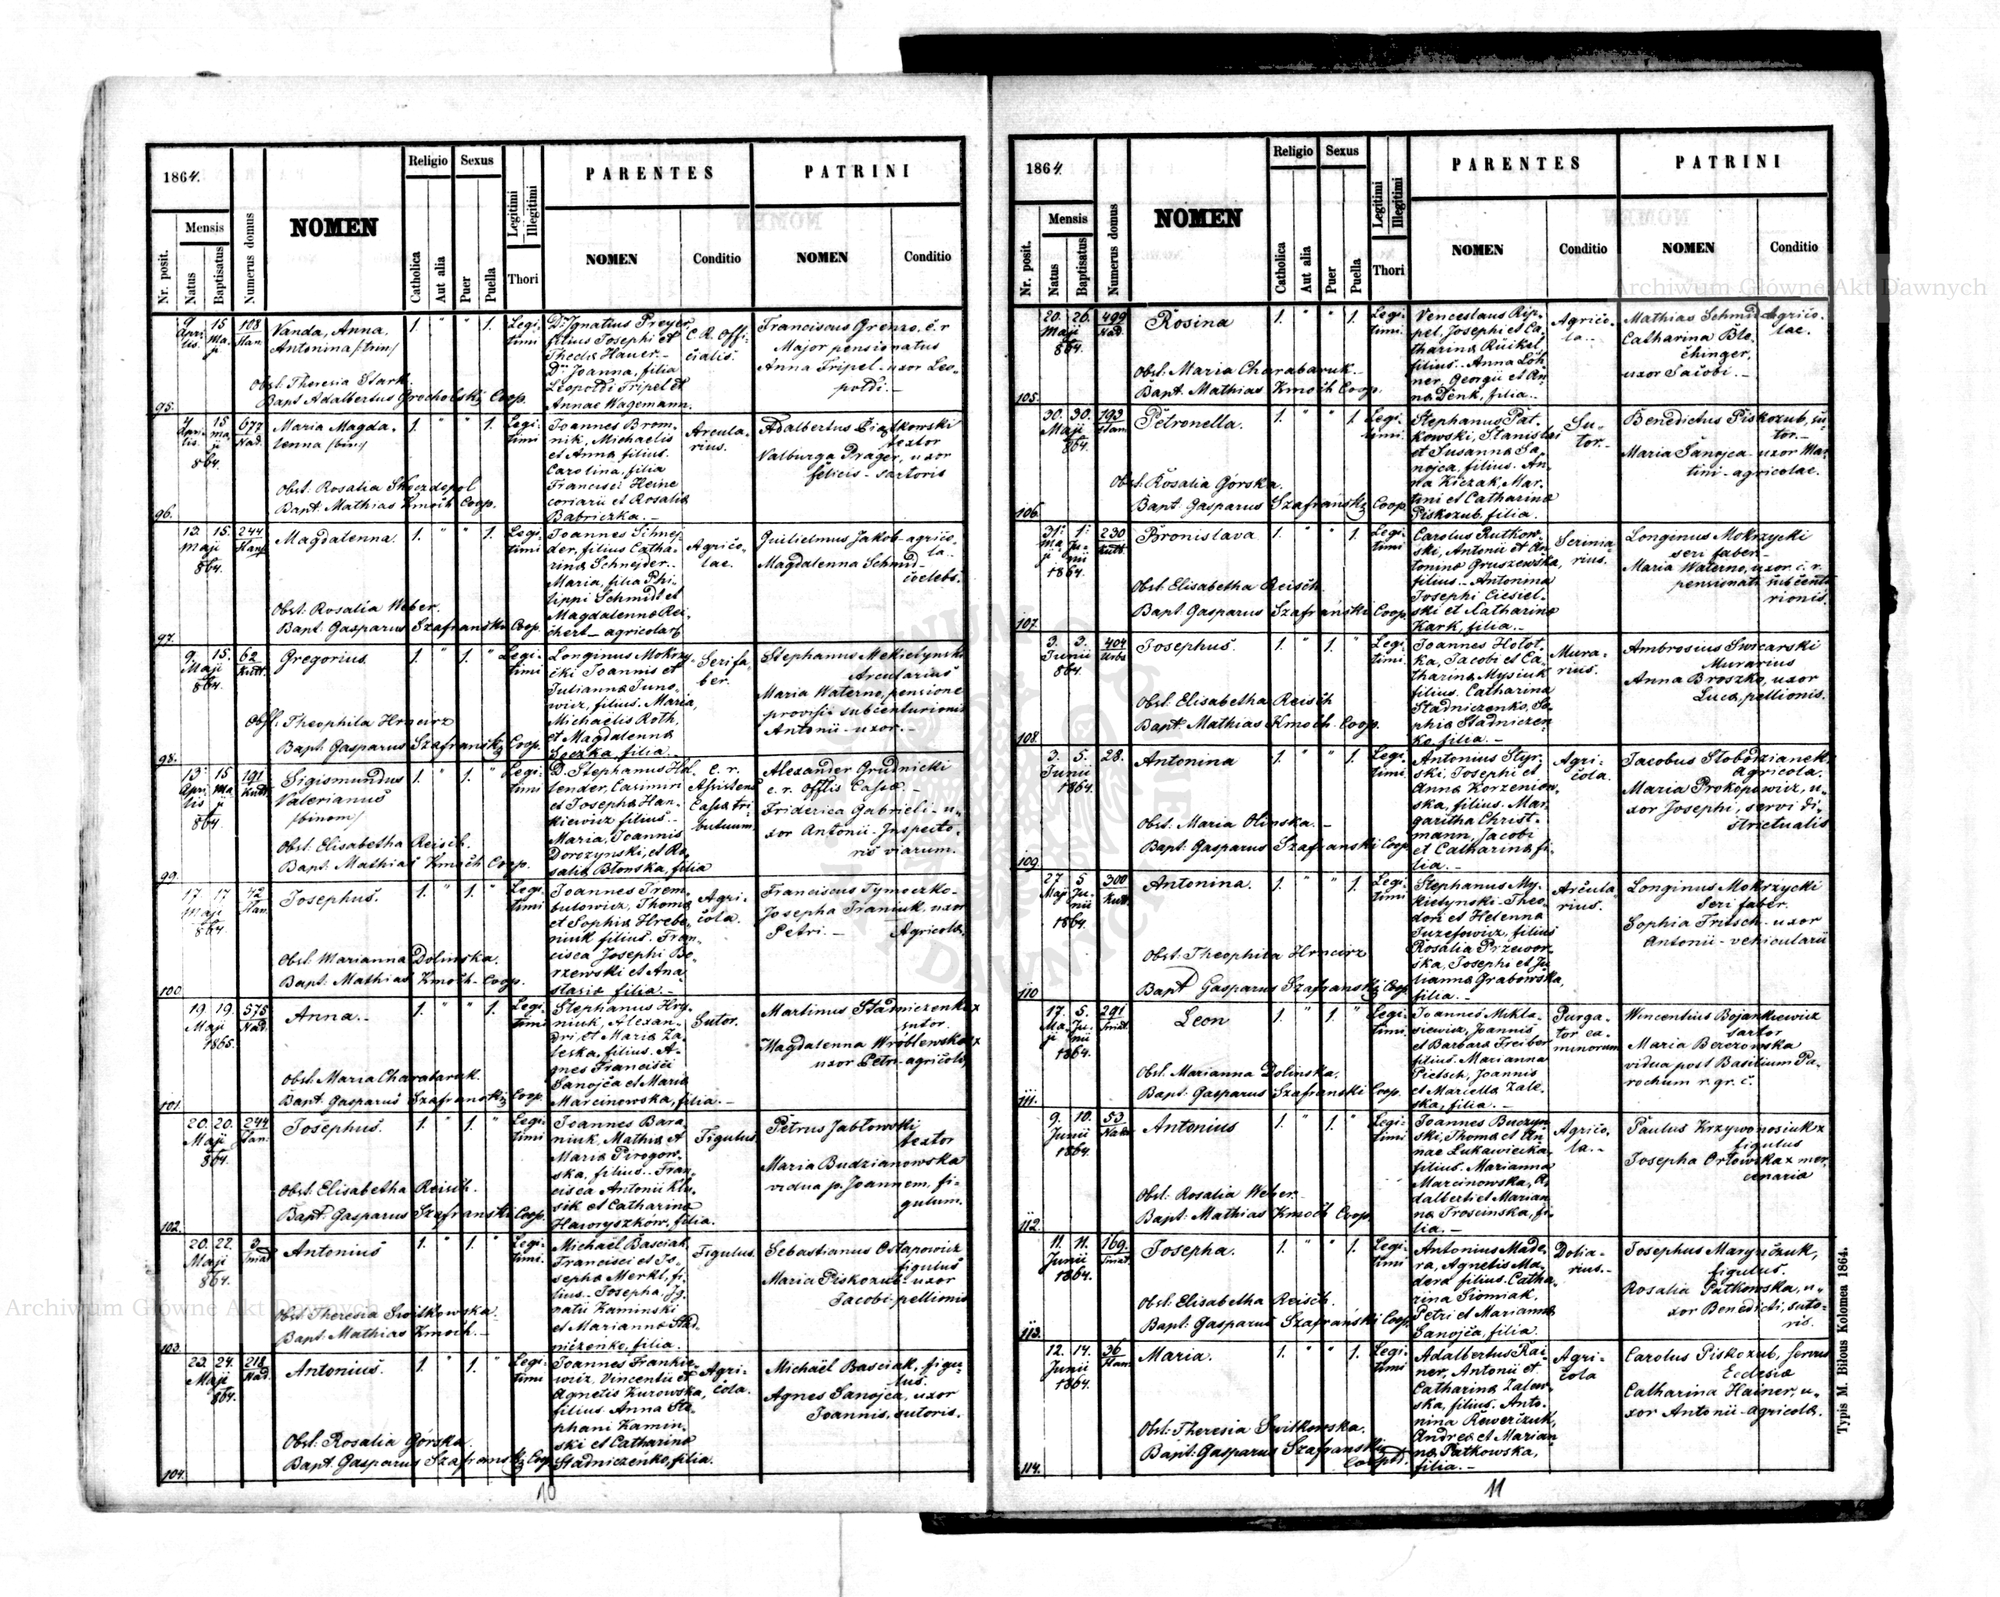 1864.
Nr. posit.
Mensis
Natus
Baptisatus
Numerus domus
NOMEN
Religio
Catholica
Aut alia
Sexus
Puer
Puella
Legitimi
Illegitimi
Thori
PARENTES
NOMEN
Conditio
PATRINI
NOMEN
Conditio
95.
9 15 108
Vanda, Anna,
Antonina /trin/
Obst. Theresia Stark.
Bapt Adalbertus Grocholski Coop.
1. " " 1.
Legi-
timi
Dr Ignatius Preyer
filius Josephi et
Hauer.-
Joanna, filia
Leopoldi Tripel et
Annae Wagemann.
C. R. Offi-
cialis.
Franciscus Grenzo, c. r
Major pensionatus
Anna Tripel - uxor Leo-
poldi.-
96.
4 15 677
Nad.
864.
Maria Magda-
lenna /bin/
Obst. Rosalia
Bapt. Mathias Kmoch Coop.
1. " " 1.
Legi-
timi
Joannes Brom-
nik, Michaelis
et Anna filius.
Carolina, filia
Francisci Heine
coriarii et Rosalia
Babriczka.-
Arcula-
rius.
Adalbertus
textor
Valburga Prager, uxor
felicis - sartoris
97.
13. 15. 244
Maji
864.
Magdalenna.
Obst. Rosalia Weber.
Bapt. Gasparus Szafranski Coop.
1. " " 1.
Legi-
timi
Joannes Schnej-
der, filius Catha-
rina Schnejder.-
Maria, filia Phi-
lippi Schmidt et
Magdalenna Rei-
chert - agricolae
Agrico-
lae.
Guilielmus Jakob - agrico-
la.-
Magdalenna Schmid -
coelebs.
98.
9 15. 62
Maji Kutt.
864.
Gregorius.
Obst. Theophila Hrncirz
Bapt. Gasparus Szafranski Coop.
1. " 1. "
Legi-
timi
Longinus Mokrzy-
cki Joannis et
Julianna Juno-
wicz, filius. Maria,
Michaelis Roth
et Magdalenna
filia.-
Serifa-
ber.
Stephanus Mekietynski
Arcularius
Maria Waterno, pensione
provisi subcenturionis
Antonii - uxor.-
99.
13. 15 191
Kutt.
864.
Sigismundus
Valerianus
/binom/
Obst. Elisabetha Reisch.
Bapt. Mathias Kmoch Coop.
1. " 1. "
Legi-
timi
D. Stephanus Hol-
lender, Casimiri
et Josepha Han-
kiewicz filius.-
Maria, Joannis
Dorozynski, et Ro-
salia Blonska, filia
C. r.
Assistens
Cassa tri-
butuum.
Alexander Grudnicki
c. r. Offlis Cassa.-
Friderica Gabrieli - u-
xor Antonii - Inspecto-
ris viarum.
100.
17. 17 42
Maji
864.
Josephus.
Obst. Marianna Dolinska.
Bapt. Mathias Kmoch - Coop.
1. " 1. "
Legi-
timi
Joannes Trem-
bulowicz, Thoma
et Sophia Hrebe-
niuk filius. Fran-
cisca Josephi Bo-
rzewski et Ana-
stasia filia.-
Agri-
cola.
Franciscus Tymoczko -
Josepha Franiuk, uxor
Petri.- Agricola.
101.
19. 19. 575
Maji Nad.
1865.
Anna.-
Obst. Maria Charabaruk.
Bapt. Gasparus Szafranski Coop.
1. " " 1.
Legi-
timi
Stephanus Hry-
niuk, Alexan-
dri, et Maria Za-
leska, filius. A-
gnes Francisci
Sanojca et Maria
Marcinowska, filia.-
Sutor.
Martinus Stadniczenko x
sutor.
Magdalenna Wroblewska x
uxor Petri - agricola,
102.
20. 20. 244
Maji
864.
Josephus.
Obst. Elisabetha Reisch.
Bapt. Gasparus Szafranski Coop.
1. " 1. "
Legi-
timi
Joannes Bara-
niuk, Mathia et
Maria Pirogow-
ska, filius.- Fran-
cisca Antonii Klu-
sik et Catharina
Hawryszków, filia.
Figulus.
Petrus Jablowski
textor
Maria Budzianowska
vidua p. Joannem, fi-
gulum.
103.
20. 22. 3
Maji
864.
Antonius
Obst. Theresia Switkowska.
Bapt. Mathias Kmoch.-
1. " 1. "
Legi-
timi.
Michael Basciak
Francisci et Jo-
sepha Merkl, fi-
lius.- Josepha, Ig-
natii Kaminski
et Marianna Stad-
niczenko, filia.
Figulus.
Sebastianus Ostapowicz
figulus
Maria Piskozub - uxor
Jacobi - pellionis
104.
23. 24. 218
Maji Nad.
864.
Antonius.
Obst. Rosalia Górska.
Bapt. Gasparus Szafranski Coop.
1. " 1. "
Legi-
timi
Joannes Frankie-
wicz, Vincentii et
Agnetis Kurowska,
filius. Anna Ste-
phani Kamin-
ski et Catharina
Stadniczenko, filia.
Agri-
cola.
Michaël Basciak, figu-
lus.
Agnes Sanojca, uxor
Joannis, sutoris.
10
1864.
Nr. posit.
Mensis
Natus
Baptisatus
Numerus domus
NOMEN
Religio
Catholica
Aut alia
Sexus
Puer
Puella
Legitimi
Illegitimi
Thori
PARENTES
NOMEN
Conditio
PATRINI
NOMEN
Conditio
105.
20. 26. 499
Maji Nad.
864.
Rosina
Obst. Maria Charabaruk.-
Bapt. Mathias Kmoch Coop.
1. " " 1.
Legi-
timi.
Venceslaus Rip-
pel, Josephi et Ca-
tharina Rückel
filius.- Anna Löh-
ner, Georgii et An-
na Denk, filia.-
Agrico-
la.-
Mathias Schmid - agrico-
lae.
Catharina Blo-
chinger,
uxor Jacobi.-
106.
30. 30. 193
Maji
864.
Petronella.
Obst. Rosalia Górska.
Bapt. Gasparus Szafranski Coop.
1. " " 1.
Legi-
timi.
Stephanus Pat-
kowski, Stanislai
et Susanna Sa-
nojca, filius. An-
na Kiczak, Mar-
tini et Catharina
Piskozub, filia.
Su-
tor.-
Benedictus Piskozub, su-
tor.-
Maria Sanojca - uxor Mar-
tini - agricolae.
107.
31. 1. 230
Kutt.
1864.
Bronislava
Obst. Elisabetha Reisch.
Bapt. Gasparus Szafranski Coop.
1. " " 1.
Legi-
timi
Carolus Rutkow-
ski, Antonii et An-
tonina Gruszewska,
filius.- Antonina
Josephi Ciesiel-
ski et Catharina
Kark, filia.-
Scrinia-
rius.
Longinus Mokrzycki
seri faber.-
Maria Waterno, uxor c. r.
pensionati subcentu-
rionis.
108.
3. 3. 404
Junii Urbs
864.
Josephus.
Obst. Elisabetha Reisch
Bapt. Mathias Kmoch. Coop.
1. " 1. "
Legi-
timi.
Joannes Holot-
ka, Jacobi et Ca-
tharina Mysiuk
filius. Catharina
Stadniczenko, Jo-
sephi Stadniczen-
ko filia.-
Mura-
rius.
Ambrosius Swicarski
Murarius
Anna Broszko, uxor
Luca, pellionis.
109.
3. 5. 28.
Junii
1864.
Antonina
Obst. Maria Olinska.-
Bapt. Gasparus Szafranski Coop
1. " " 1.
Legi-
timi
Antonius Styr-
ski, Josephi et
Anna Korzeniow-
ska, filius. Mar-
garitha Christ-
mann, Jacobi
et Catharina fi-
lia.-
Agri-
cola.
Jacobus Slobodzianek
Agricola.
Maria Prokopowicz, u-
xor Josephi, servi di-
strictualis
110
27 5 300
Kutt.
1864.
Antonina.
Obst. Theophila Hrncirz
Bapt. Gasparus Szafranski Coop.
1. " " 1.
Legi-
timi
Stephanus My-
kietynski - Theo-
dori et Helenna
Juzefowicz, filius
Rosalia Przewor-
ska, Josephi et Ju-
lianna Grabowska,
filia.-
Arcula-
rius.
Longinus Mokrzycki
Seri faber.
Sophia Fritsch - uxor
Antonii - vehicularii
111.
17. 5. 291
1864.
Leon
Obst. Marianna Dolinska.
Bapt. Gasparus Szafranski Coop.
1. " 1. "
Legi-
timi.
Joannes Mikla-
siewicz, Joannis
et Barbara Treibor
filius. Marianna
Pietsch, Joannis
et Mariella Zale-
ska, filia.-
Purga-
tor ca-
minorum
Wincentius Bojankiewicz
sartor
Maria Berezowska
vidua post Basilium Pa-
rochum r. gr. c.
112.
9. 10. 53
Junii
1864.
Antonius
Obst. Rosalia Weber.-
Bapt. Mathias Kmoch Coop.
1. " 1. "
Legi-
timi
Joannes Buczyn-
ski, Thoma et An-
nae Lukawiecka,
filius. Marianna
Marcinowska, A-
dalberti et Marian-
na Troscinska, fi-
lia.-
Agrico-
la.-
Paulus Krzywonosiuk x
figulus
Josepha Orlowska x mer-
cenaria
113.
11. 11. 169.
Junii
1864.
Josepha.
Obst. Elisabetha Reisch.
Bapt. Gasparus Szafranski Coop.
1. " " 1.
Legi-
timi
Antonius Made-
ra, Agnetis Ma-
dera filius. Catha-
rina Sioniak,
Petri et Marianna
Sanojca, filia.
Dolia-
rius.-
Josephus Maryńczuk,
figulus.
Rosalia Patkowska, u-
xor Benedicti, suto-
ris.
114.
12. 14. 36
Junii
1864.
Maria.
Obst. Theresia Switkowska.
Bapt. Gasparus Szafranski
1. " " 1.
Legi-
timi
Adalbertus Rai-
ner, Antonii et
Catharina Zalew-
ska, filius. Anto-
nina Rewerczuk,
Andrea et Marian-
na Patkowska,
filia.-
Agri-
cola
Carolus Piskozub, servus
Ecclesia
Catharina Hainer, u-
xor Antonii - agricola.
11
Typis M. Bilous Kolomea 1864.
Archiwum Główne Akt Dawnych
Archiwum Główne Akt Dawnych